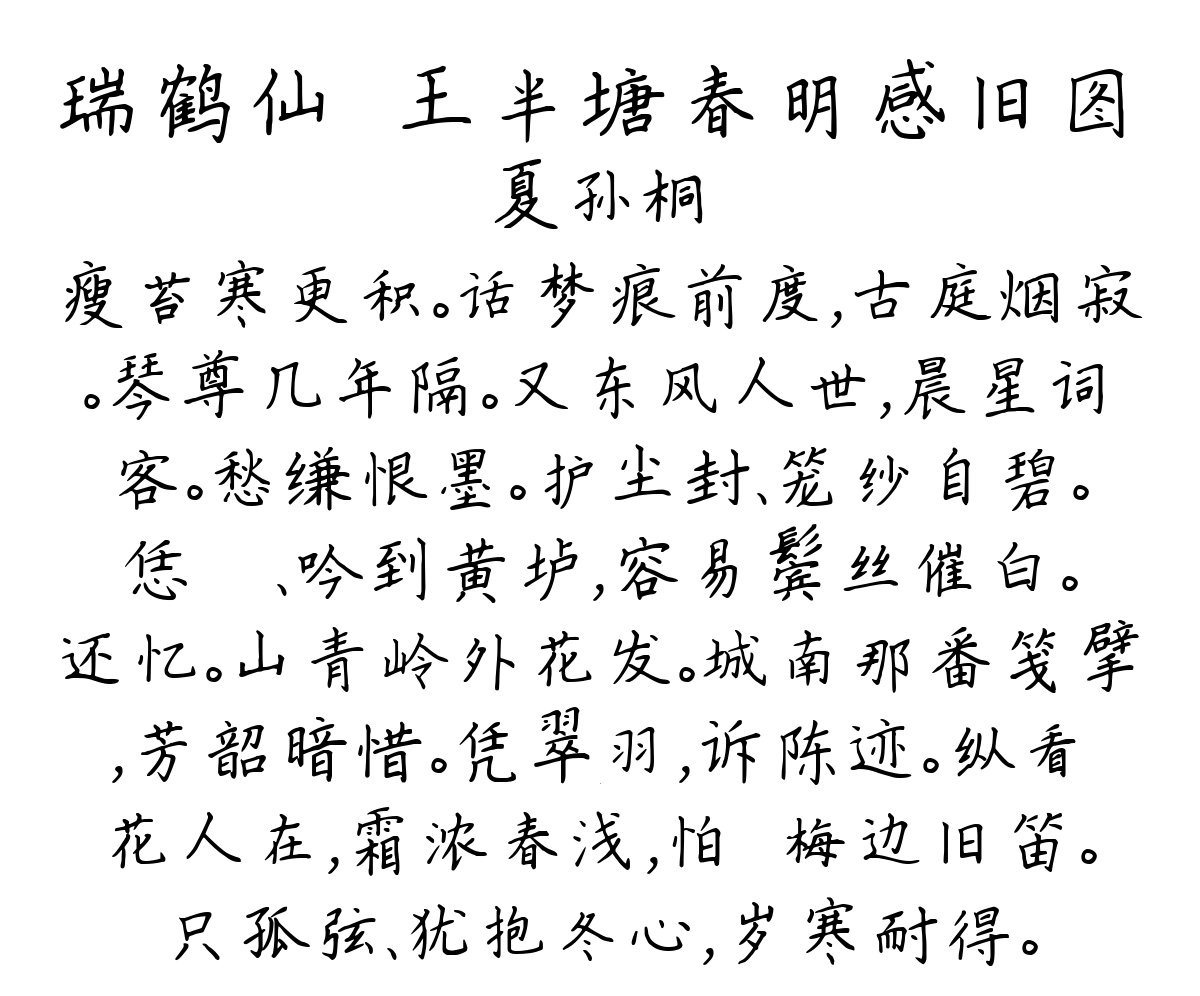 瑞鹤仙 王半塘春明感旧图
夏孙桐
瘦苔寒更积。话梦痕前度,古庭烟寂
。琴尊几年隔。又东风人世,晨星词
客。愁缣恨墨。护尘封、笼纱自碧。
恁 、吟到黄垆,容易鬓丝催白。
还忆。山青岭外花发。城南那番笺擘
,芳韶暗惜。凭翠羽,诉陈迹。纵看
花人在,霜浓春浅,怕 梅边旧笛。
只孤弦、犹抱冬心,岁寒耐得。